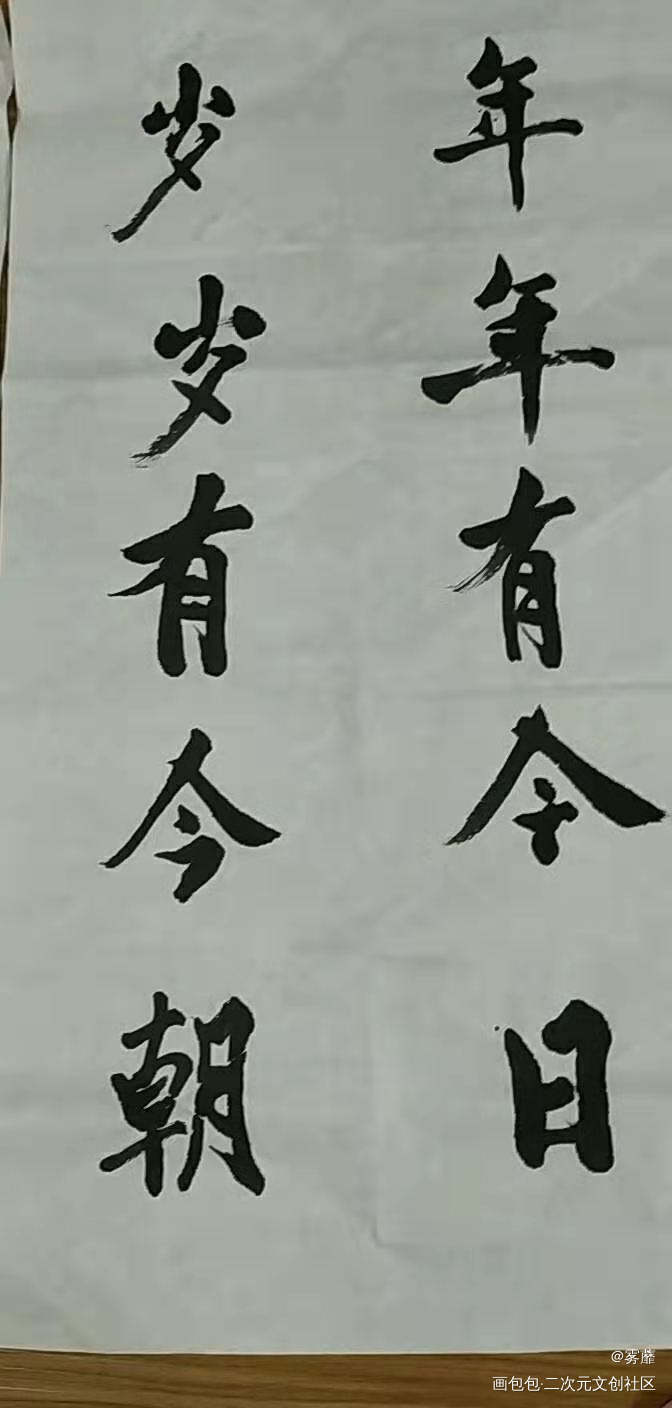 年年有今日
岁岁有今朝
@雾靡
画包包·二次元文创社区